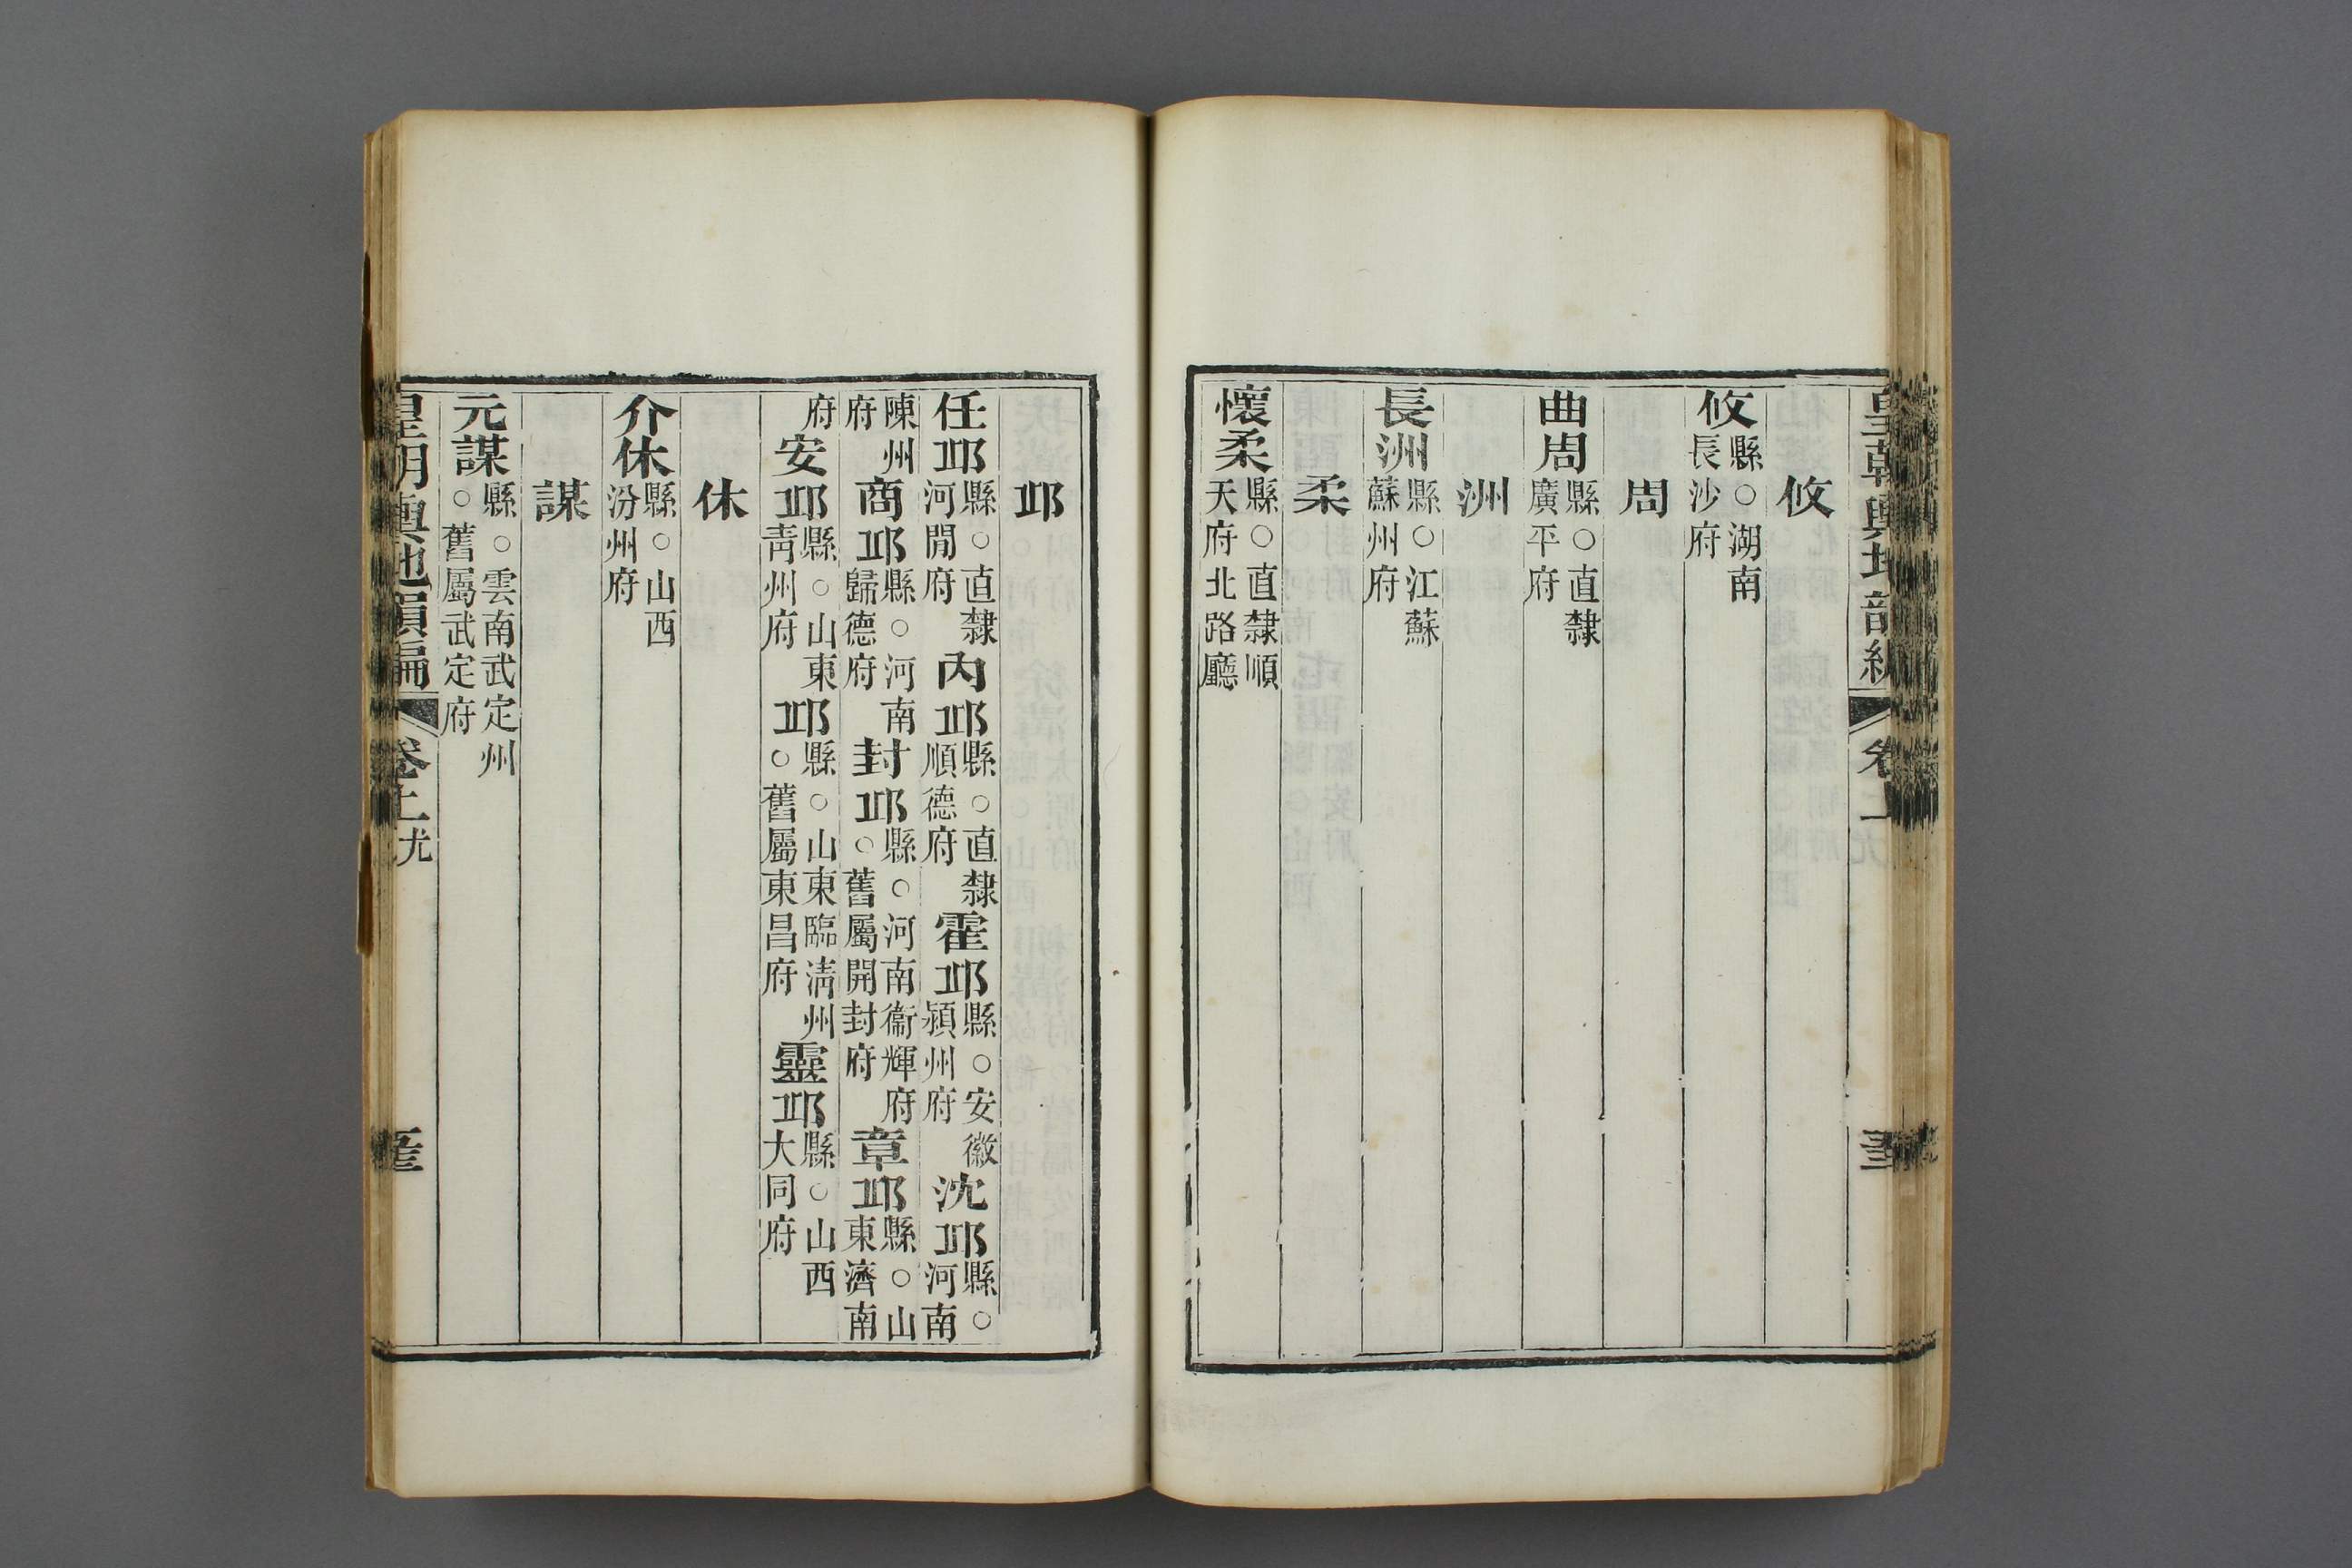 皇朝輿地韻編 卷上
攸
攸縣○湖南長沙府
周
曲周縣○直隸廣平府
洲
長洲縣○江蘇蘇州府
柔
懷柔縣○直隸順天府北路廳
邱
任邱縣○直隸河閒府 內邱縣○直隸順德府 霍邱縣○安徽潁州府 沈邱縣○河南
陳州府 商邱縣○河南歸德府 封邱縣○河南衞輝府○舊屬開封府 章邱縣○山東濟南
府 安邱縣○山東青州府 邱縣○山東臨清州○舊屬東昌府 靈邱縣○山西大同府
休
介休縣○山西汾州府
謀
元謀縣○雲南武定州○舊屬武定府
皇朝輿地韻編 卷上 尤